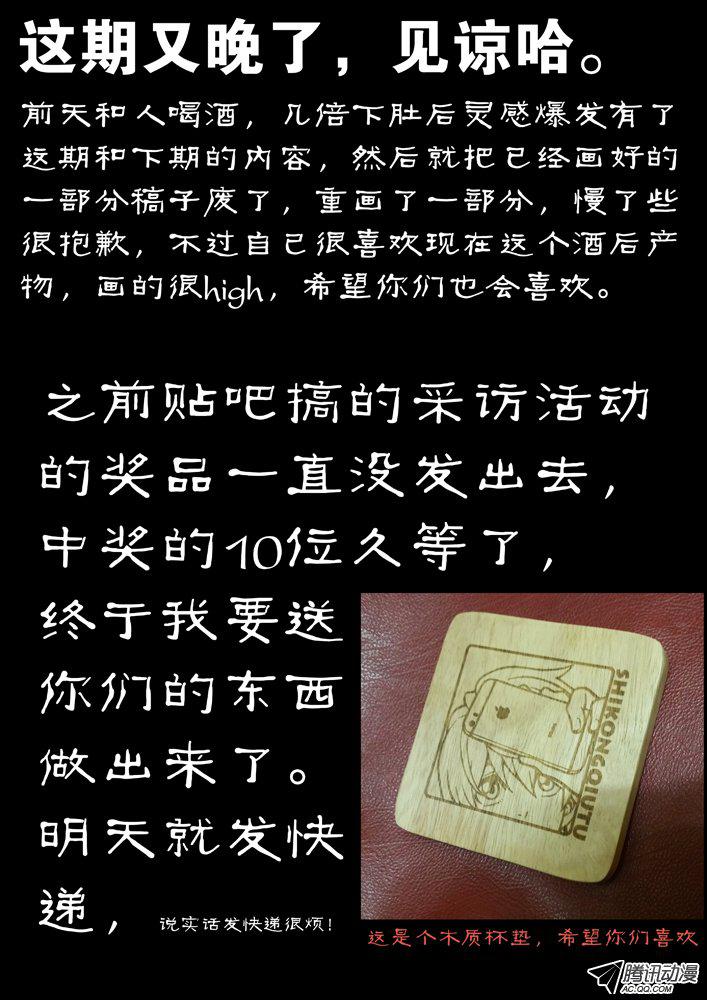 这期又晚了，见谅哈。
前天和人喝酒，几倍下肚后灵感爆发有了
这期和下期的内容，然后就把已经画好的
一部分稿子废了，重画了一部分，慢了些
很抱歉，不过自己很喜欢现在这个酒后产
物，画的很high，希望你们也会喜欢。
之前贴吧搞的采访活动
的奖品一直没发出去，
中奖的10位久等了，
终于我要送
你们的东西
做出来了。
明天就发快
递，说实话发快递很烦！
SHIKONGQIUTU
这是个木质杯垫，希望你们喜欢
腾讯动漫
AC.QQ.COM